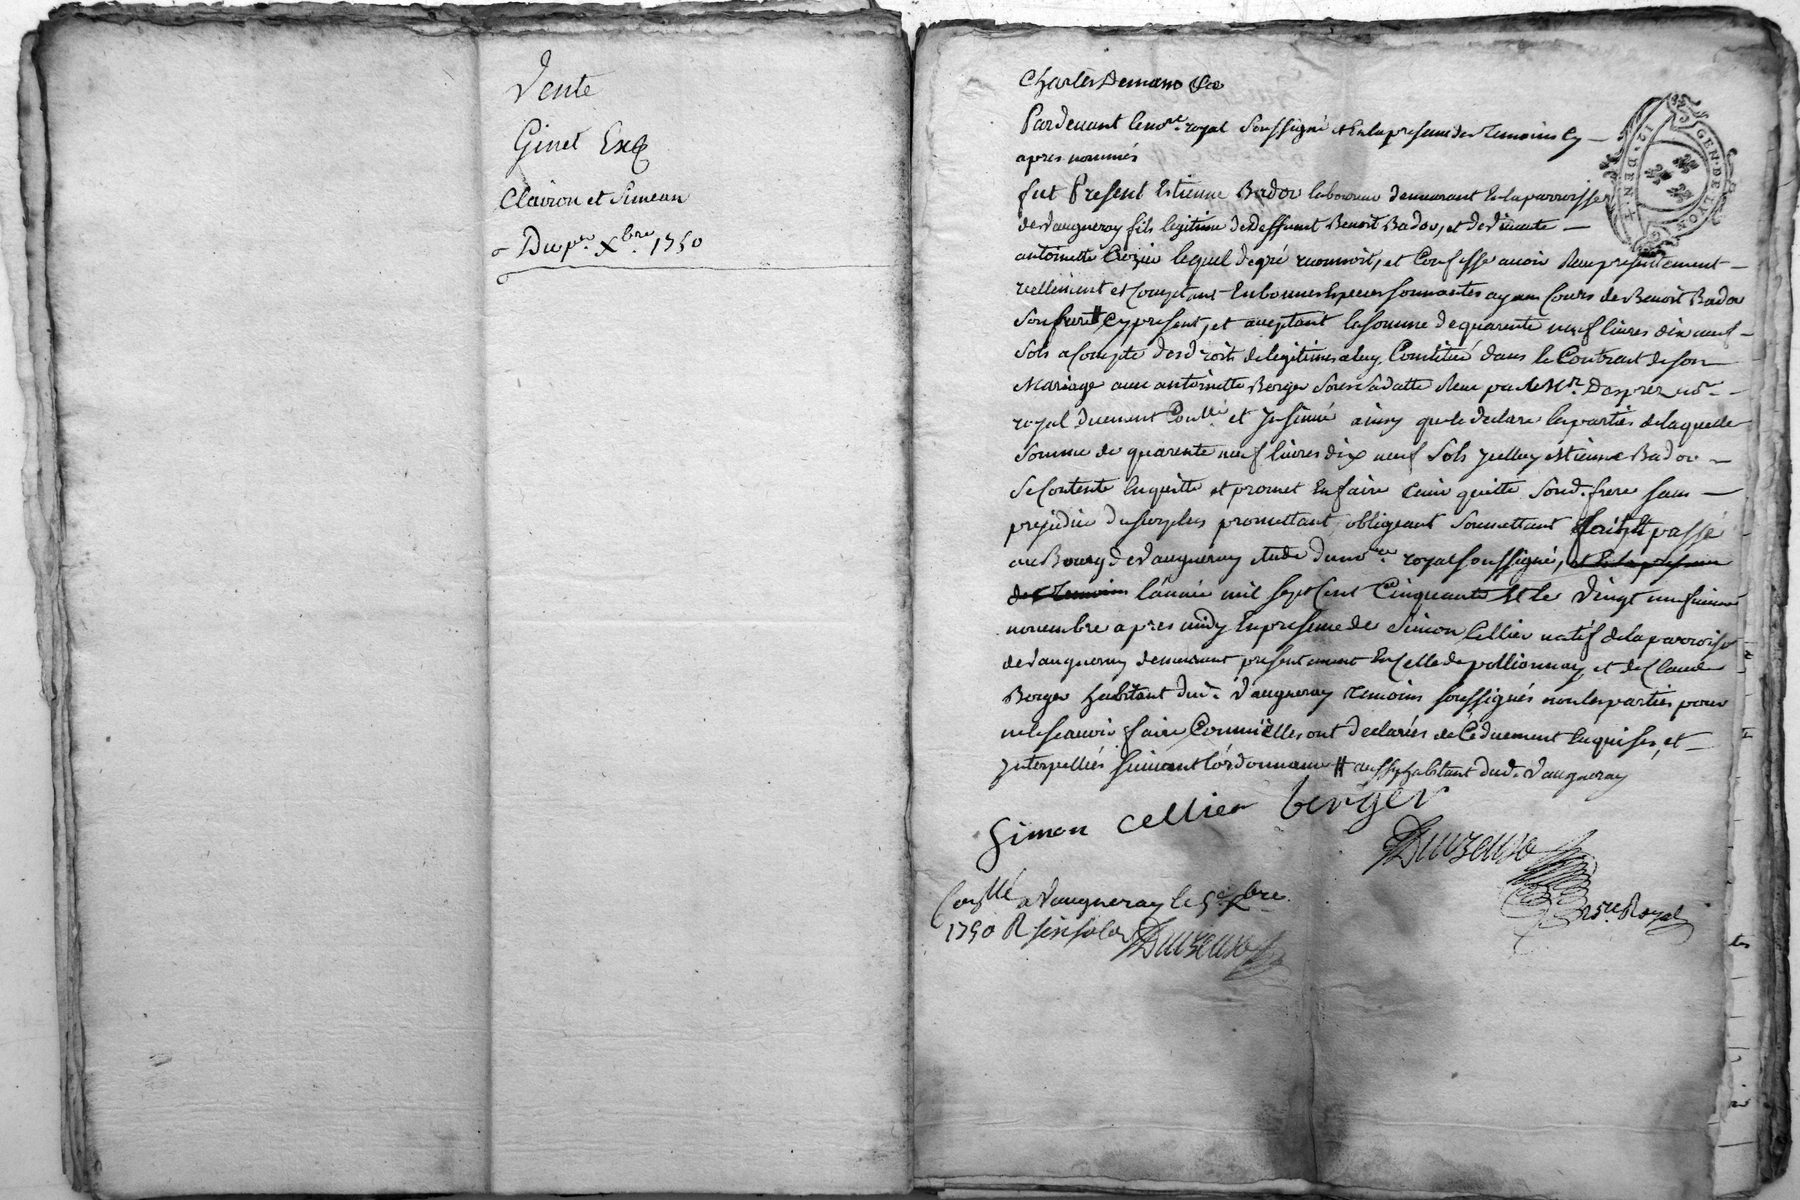 Vente
Ginet
Clairon et Simean
Du p.er Xbre 1750
Charles Demano
Pardevant le no.re royal soussigné et En la presence des temoins Cy
apres nommés
fut Present Estienne Bador laboureur demeurant En la parroisse
de Vaugneray fils legitime de deffunt Benoit Bador, et de vivante
antoinette Crozier lequel de gré reconnoit, et Confesse avoir Receu presentement
reellement et Comptant En bonnes Especes sonnantes ayans Cours de Benoit Bador
son frere # Cy present, et aceptant la somme de quarente neuf livres dix neuf
sols a Compte des droits de legitimes a luy Constitué dans le Contract de son
Mariage avec antoinette Berger sous sa datte Receu par Me Desprez no.re
royal duement Con.llé et Jnsinué ainsy que le declare les parties de laquelle
somme de quarente neuf livres dix neuf sols jcelluy Estienne Bador
se Contente En quitte et promet En faire tenir quitte sond. frere sans
prejudice du surplus promettant, obligeant soumettant faict et passé
au Bourg de Vaugneray Etude du no.re royal soussigné, et En la presence
des temoins l'année mil sept Cent Cinquante Et le vingt neufvieme
novembre apres midy En presence de Simon Cellier natif de la parroisse
de Vaugneray demeurant presentement En Celle de pollionnay, et de Claude
Berger habitant dud. Vaugneray temoins soussignés non les parties pour
ne le scavoir faire Comme Elles ont declarées de Ce duement Enquises, et
Jnterpellées suivant l'ordonnance # aussy habitant dud. Vaugneray
Simon Cellier berger
n.re Royal
Con.llé a Vaugneray le 5.e Xbre
1750 R six sols
GEN. DE LYON